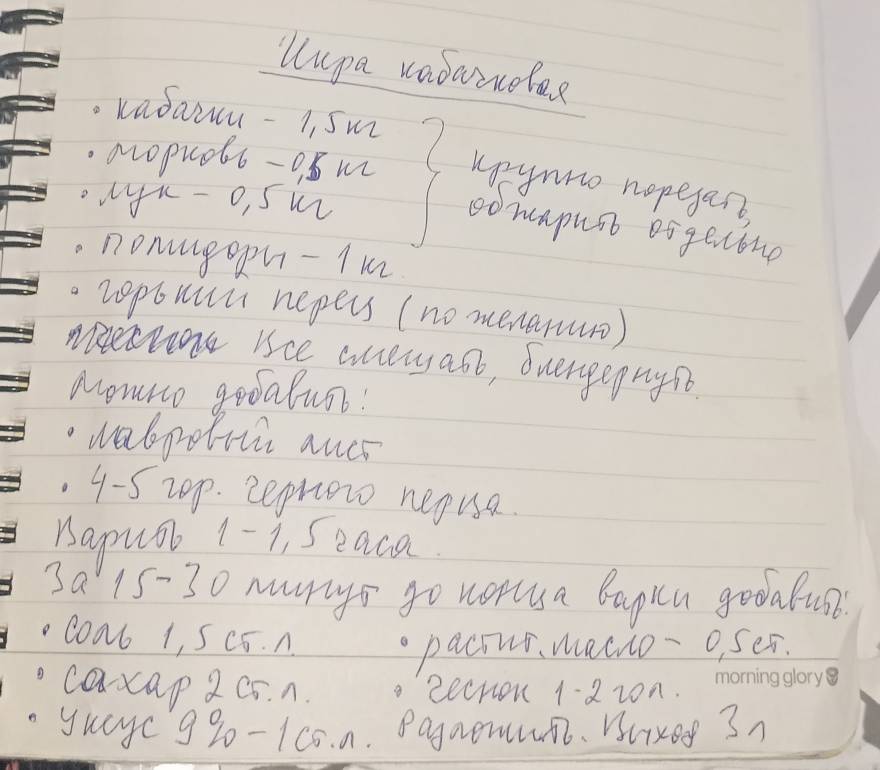 Икра кабачковая
• кабачки - 1,5 кг
• морковь - 0,5 кг
• лук - 0,5 кг
крупно порезать,
обжарить отдельно
• помидоры - 1 кг
• горький перец (по желанию)
Все смешать, блендернуть.
Можно добавить:
• лавровый лист
• 4-5 гор. черного перца.
Варить 1-1,5 часа.
За 15-30 минут до конца варки добавить:
• соль 1,5 ст. л. • растит. масло - 0,5 ст.
• сахар 2 ст. л. • чеснок 1-2 гол.
morning glory
• уксус 9% - 1 ст. л. Разложить. Выход 3 л